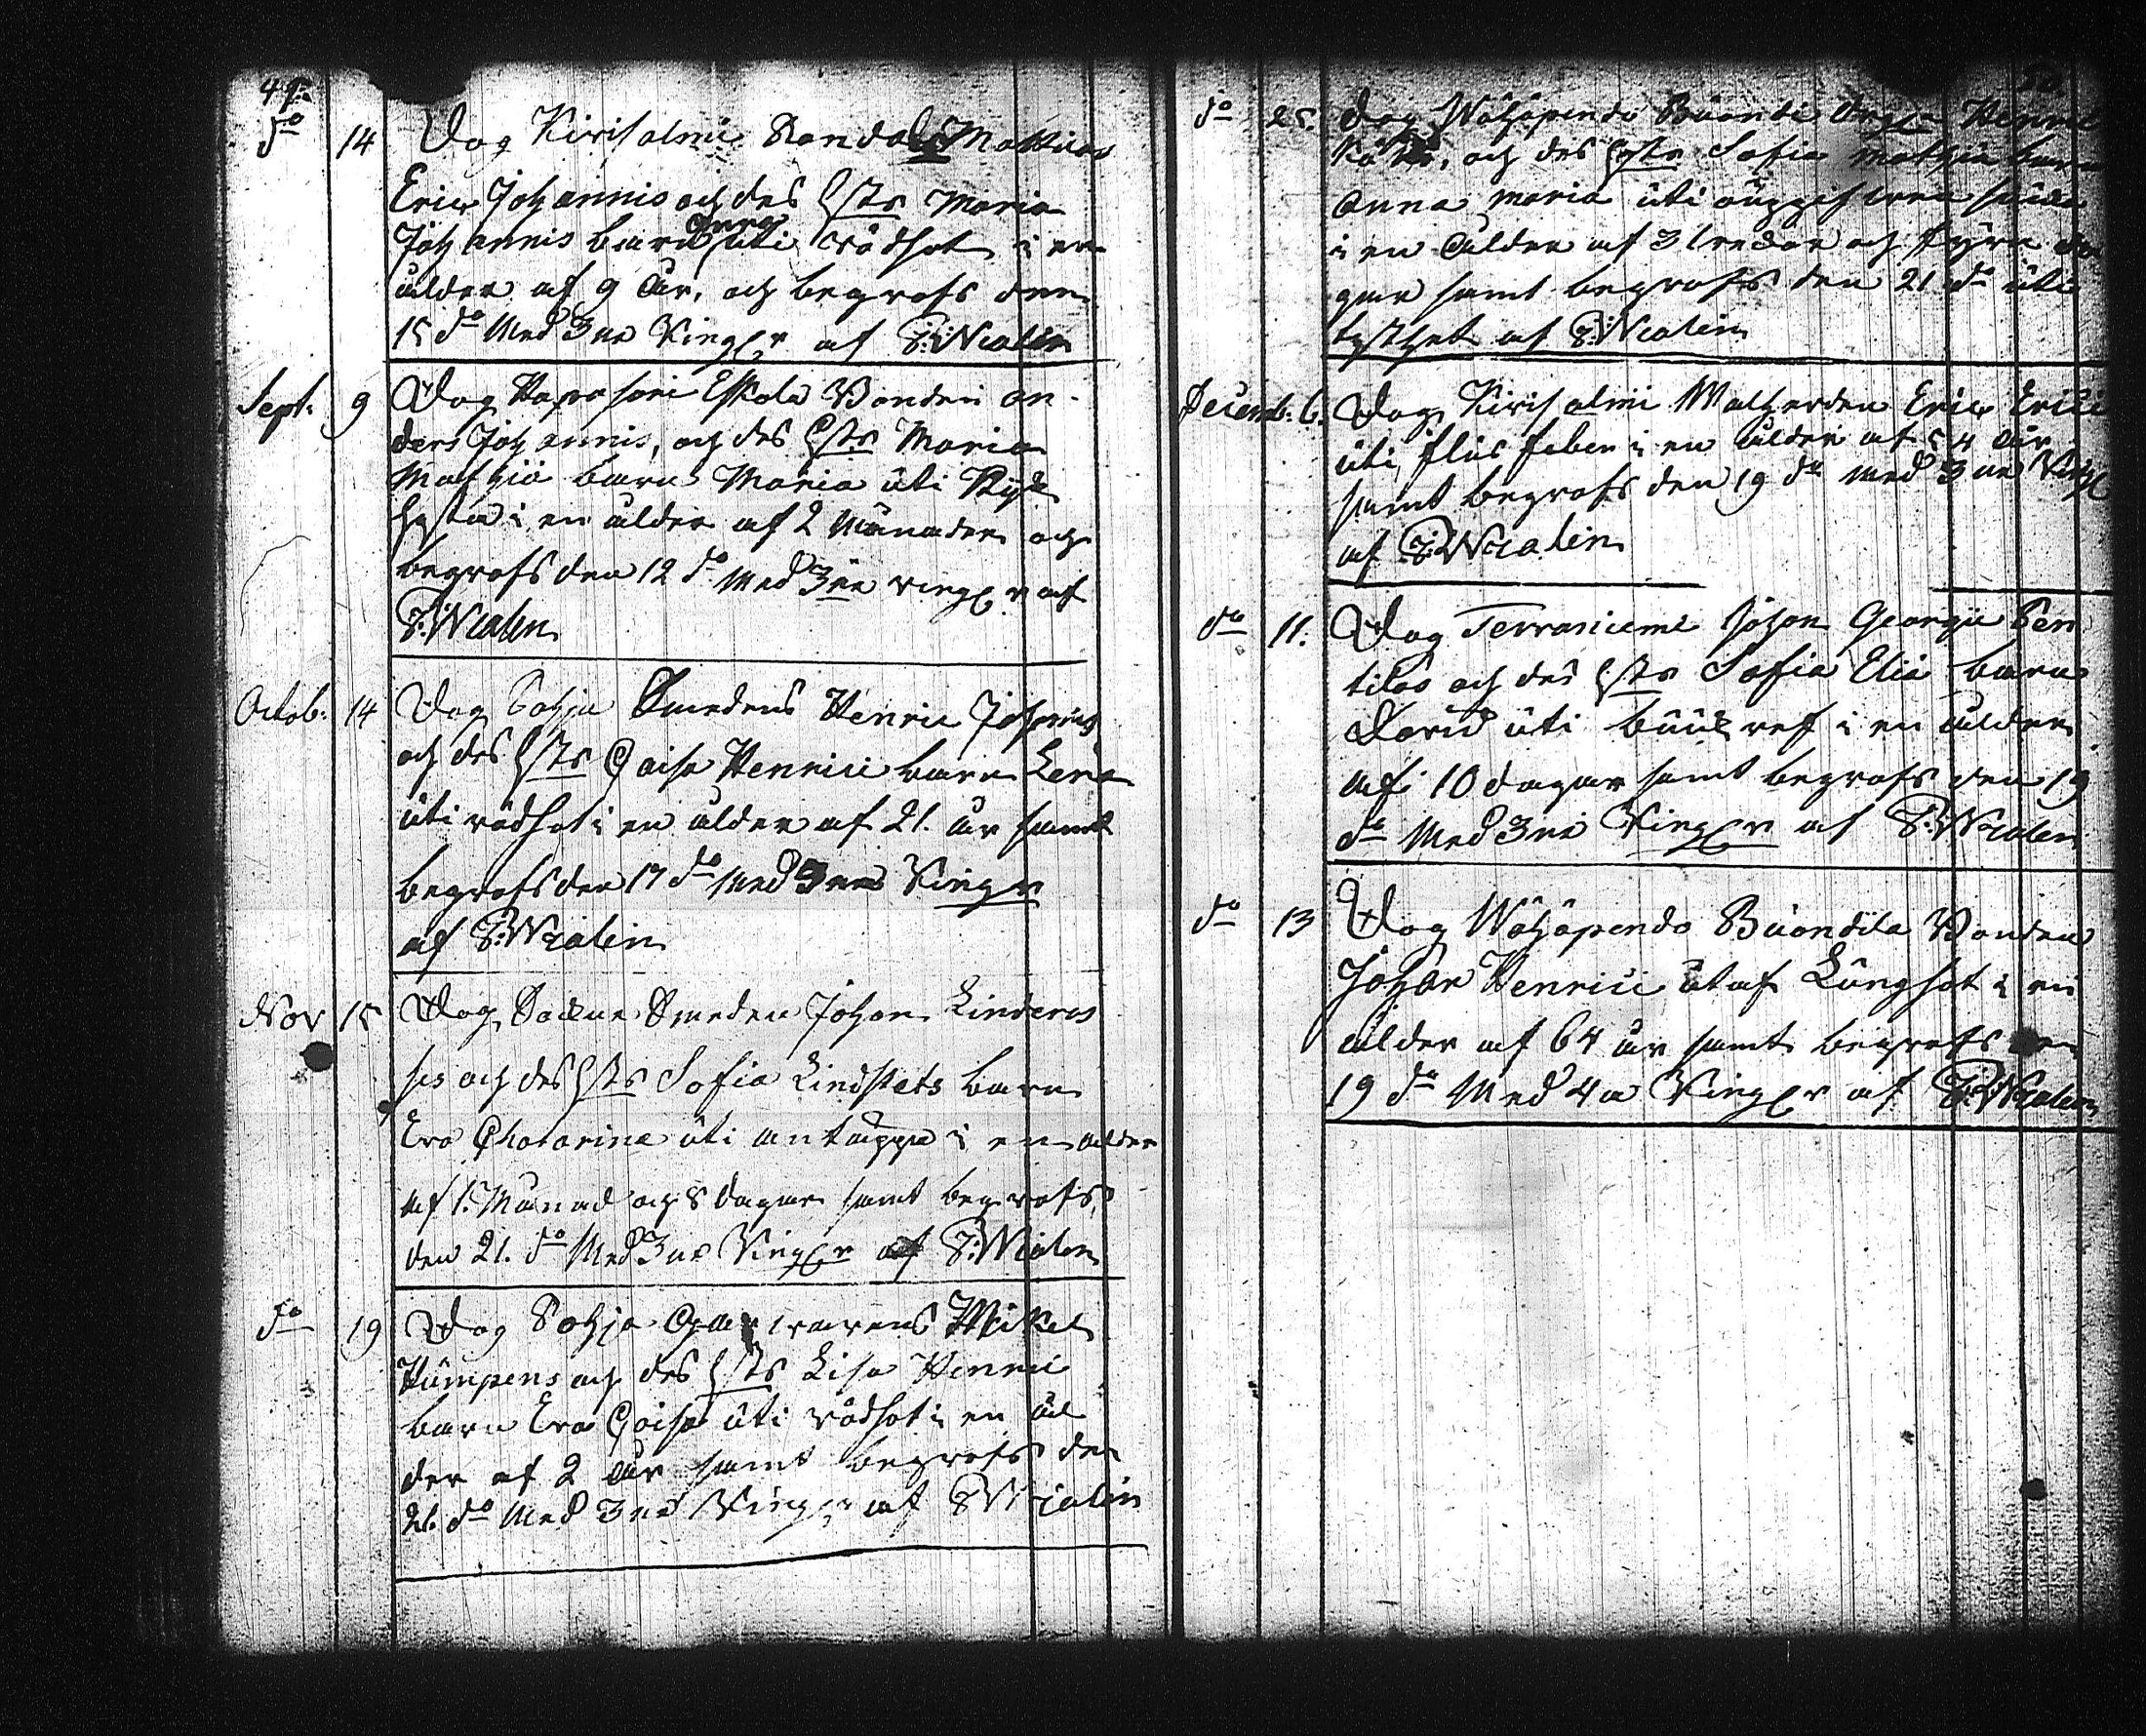 49.
do 14 Dog Kirisalmi Randal Mattias
Eric Johannis och des hstr Maria
Johannis barn Anna uti rödsot i en
ålder af 9 åur, och begrofs den
15 do med 3ne Ringr af P: Wialen
Sept: 9 Dog Haposari Eskola Bonden An-
ders Johannis, och des hstr Maria
Mathiæ barn Maria uti Kyk
hosta i en ålder af 2 Månader och
begrofs den 12 do med 3ne ringr af
P: Wialen
Octob: 14 Dog Pohja Smedens Henric Johannis
och des hstr Caisa Henrici barn Lena
uti rödsot i en ålder af 21. åur samt
begrofs den 17 do med 3ne Ringr
af P: Wialen
Nov 15 Dog Smeden Johan Linderos
ses och des hstr Sofia Lindstets barn
Eva Chatarina uti antäppa i en ålder
af 1. Månad och 8 dagar samt begrofs
den 21. do med 3ne Ringr af P: Wialen
do 19 Dog Pohja Garfvarens Mikel
Kumpens och des hstr Lisa Henrici
barn Eva Caisa uti rödsot i en ål
der af 2 åur samt begrofs den
21. do med 3ne Ringr af P Wialen
do 25. Dog Wähäpendo Henric
och des hstr Sofia Mathiæ barn
Anna Maria uti
i en ålder af 3 och fyra da
gar samt begrofs den 21 do uti
tysthet af P: Wialen
Decemb: 6. Dog Kirisalmi Eric Erici
uti flus feber i en ålder af 54 åur
samt begrofs den 19 do med 3ne Ringr
af P: Wialen
do 11. Dog Terraniemi Johan Georgii Pen
tilas och des hstr Sofia Eliæ barn
David uti buukref i en ålder
af 10 dagar samt begrofs den 19
do med 3ne Ringr af P: Wialen
do 13 Dog Wähäpendo Buondila Bonden
Johan Henrici utaf Lungsot i en
ålder af 64 åur samt begrofs den
19 do med 4a Ringr af P: Wialen